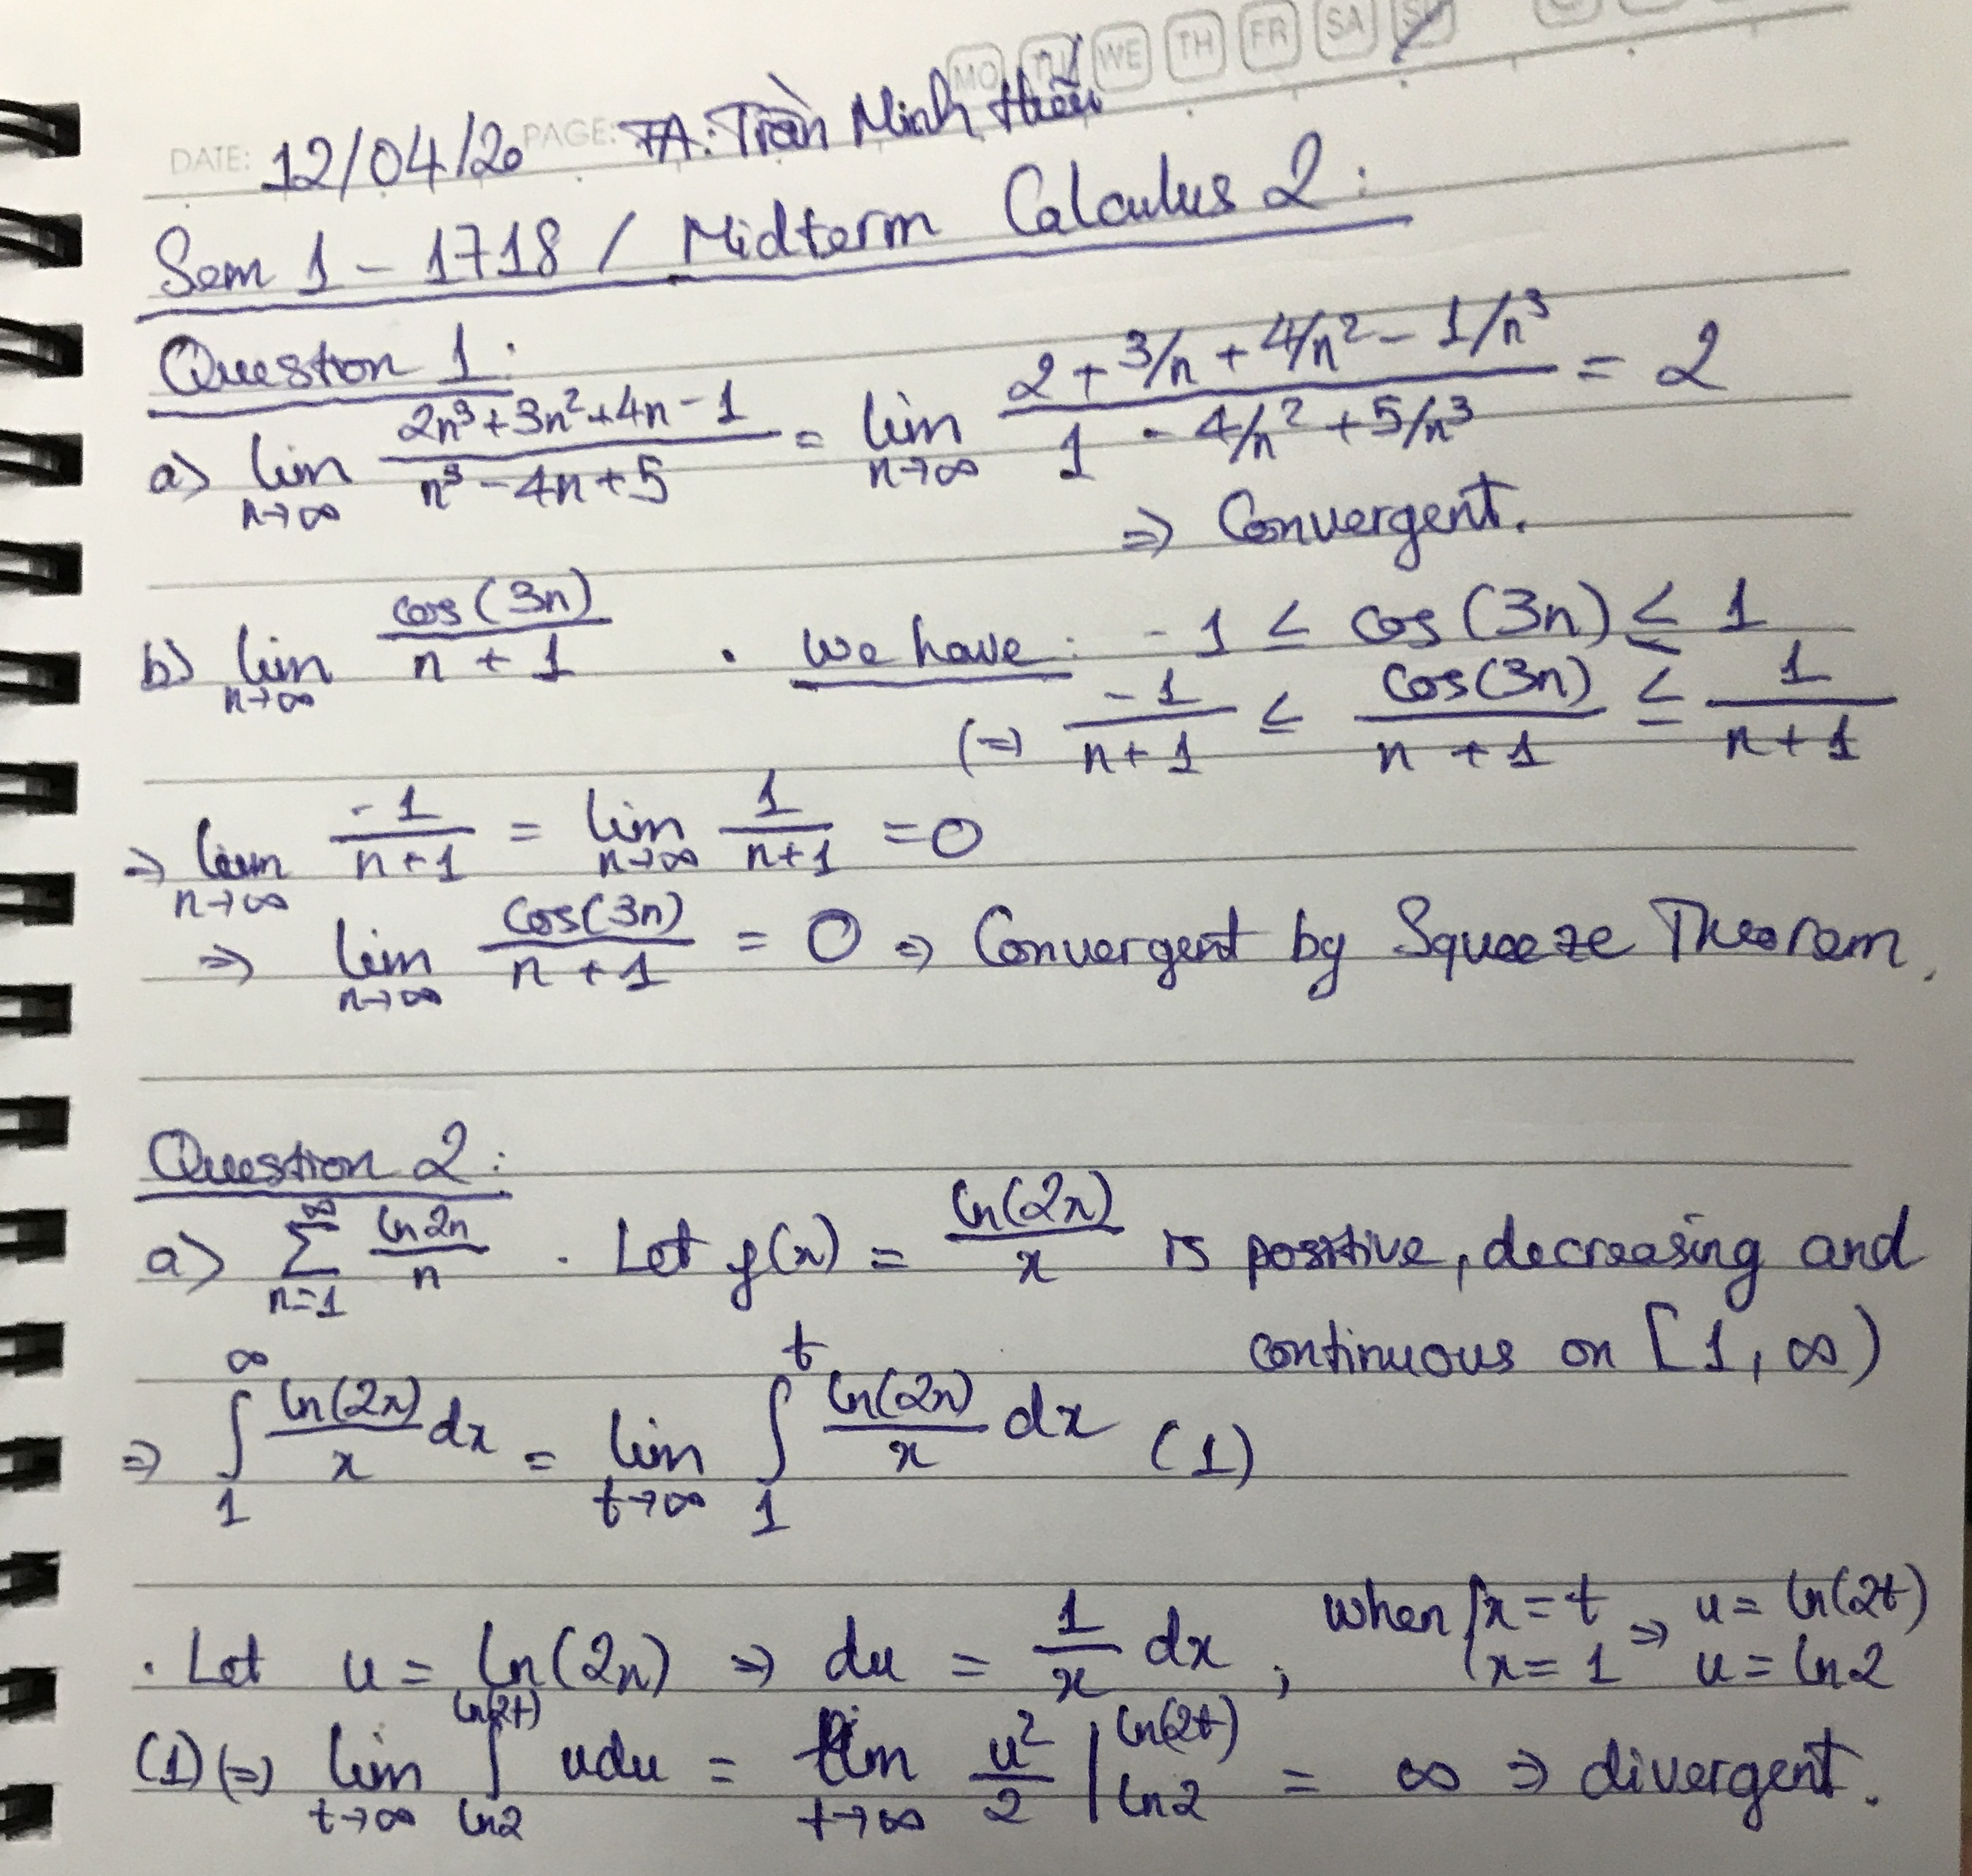 MO TU WE TH FR SA SU
DATE: 12/04/20 PAGE: TA: Trần Minh Hiếu
Sem 1 – 1718 / Midterm Calculus 2:
Question 1:
a) lim n→∞ (2n³+3n²+4n−1)/(n³−4n+5) = lim n→∞ (2+3/n+4/n²−1/n³)/(1 − 4/n²+5/n³) = 2
⇒ Convergent.
b) lim n→∞ cos(3n)/(n+1) . We have: −1 ≤ cos(3n) ≤ 1
(⇒) −1/(n+1) ≤ cos(3n)/(n+1) ≤ 1/(n+1)
⇒ lim n→∞ −1/(n+1) = lim n→∞ 1/(n+1) = 0
⇒ lim n→∞ cos(3n)/(n+1) = 0 ⇒ Convergent by Squeeze Theorem.
Question 2:
a) ∑ n=1 ∞ ln2n/n . Let f(x) = ln(2x)/x is positive, decreasing and
continuous on [1, ∞)
⇒ ∫ 1 ∞ ln(2x)/x dx = lim t→∞ ∫ 1 t ln(2x)/x dx (1)
. Let u = ln(2x) ⇒ du = 1/x dx ; when { x = t ⇒ u = ln(2t)
x = 1 u = ln2
(1) (=) lim t→∞ ∫ ln2 ln(2t) u du = lim t→∞ u²/2 | ln2 ln(2t) = ∞ ⇒ divergent.